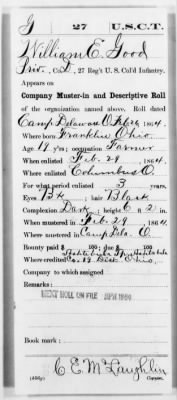 G 27 U.S.C.T.
William E. Good
Priv. Co. , 27 Reg't U. S. Col'd Infantry.
Appears on
Company Muster-in and Descriptive Roll
of the organization named above. Roll dated
Camp Delaware O. Feb 26, 1864.
Where born Franklin Ohio.
Age 19 y'rs; occupation Farmer
When enlisted Feb. 29, 1864.
Where enlisted Columbus O.
For what period enlisted 3 years.
Eyes Bk; hair Black
Complexion Dark; height 6 ft. 2 in.
When mustered in Feb. 29, 1864.
Where mustered in Camp Del. O.
Bounty paid $ 100; due $ 100
Where credited Ohio.
Company to which assigned
Remarks:
NEXT ROLL ON FILE
Book mark:
C. E. McLaughlin
Copyist.